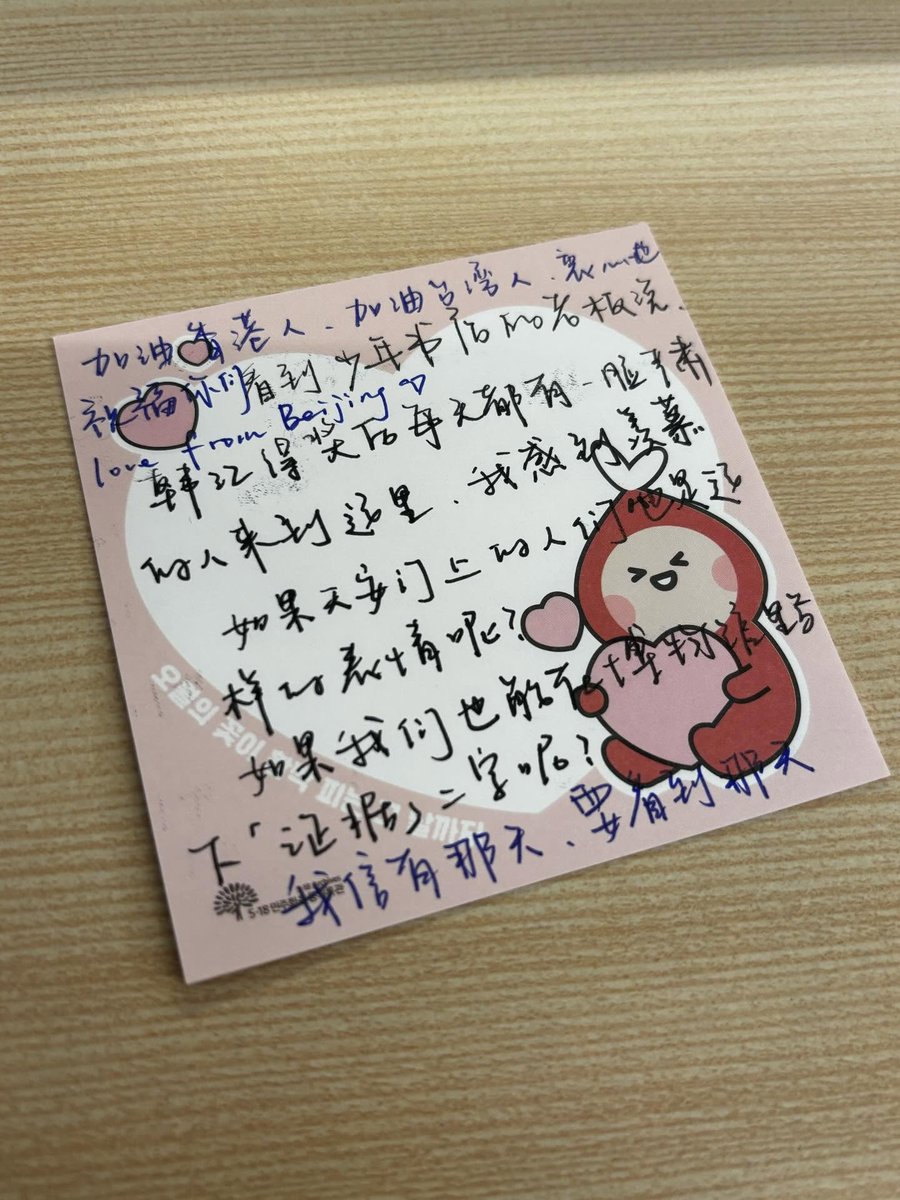 加油香港人、加油台湾人、衷心地
祝福你们
love from Beijing ♡
看到少年书店的老板说、
韩江得奖后每天都有一脸严肃
的人来到这里、我感到羡慕
如果天安门上的人们也是这
样的表情呢?
如果我们也能在博物馆里写
下「证据」二字呢?
我信有那天、要看到那天
오월의 꽃이
5·18